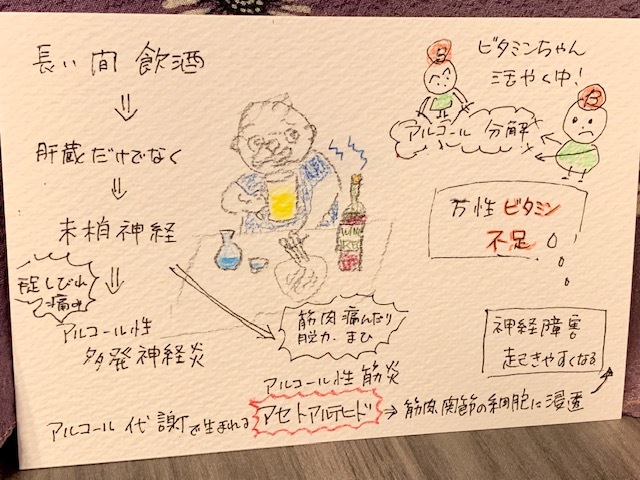 長い間 飲酒
肝蔵だけでなく
末梢神経
足しびれ
痛み
アルコール性
多発神経炎
B
ビタミンちゃん
活やく中!
B
アルコール 分解
WINE
万性ビタミン
不足
筋肉痛んだり
脱力. まひ
アルコール性筋炎
神経障害
起きやすくなる
アルコール代謝で生まれる アセトアルデヒド → 筋肉関節の細胞に浸透